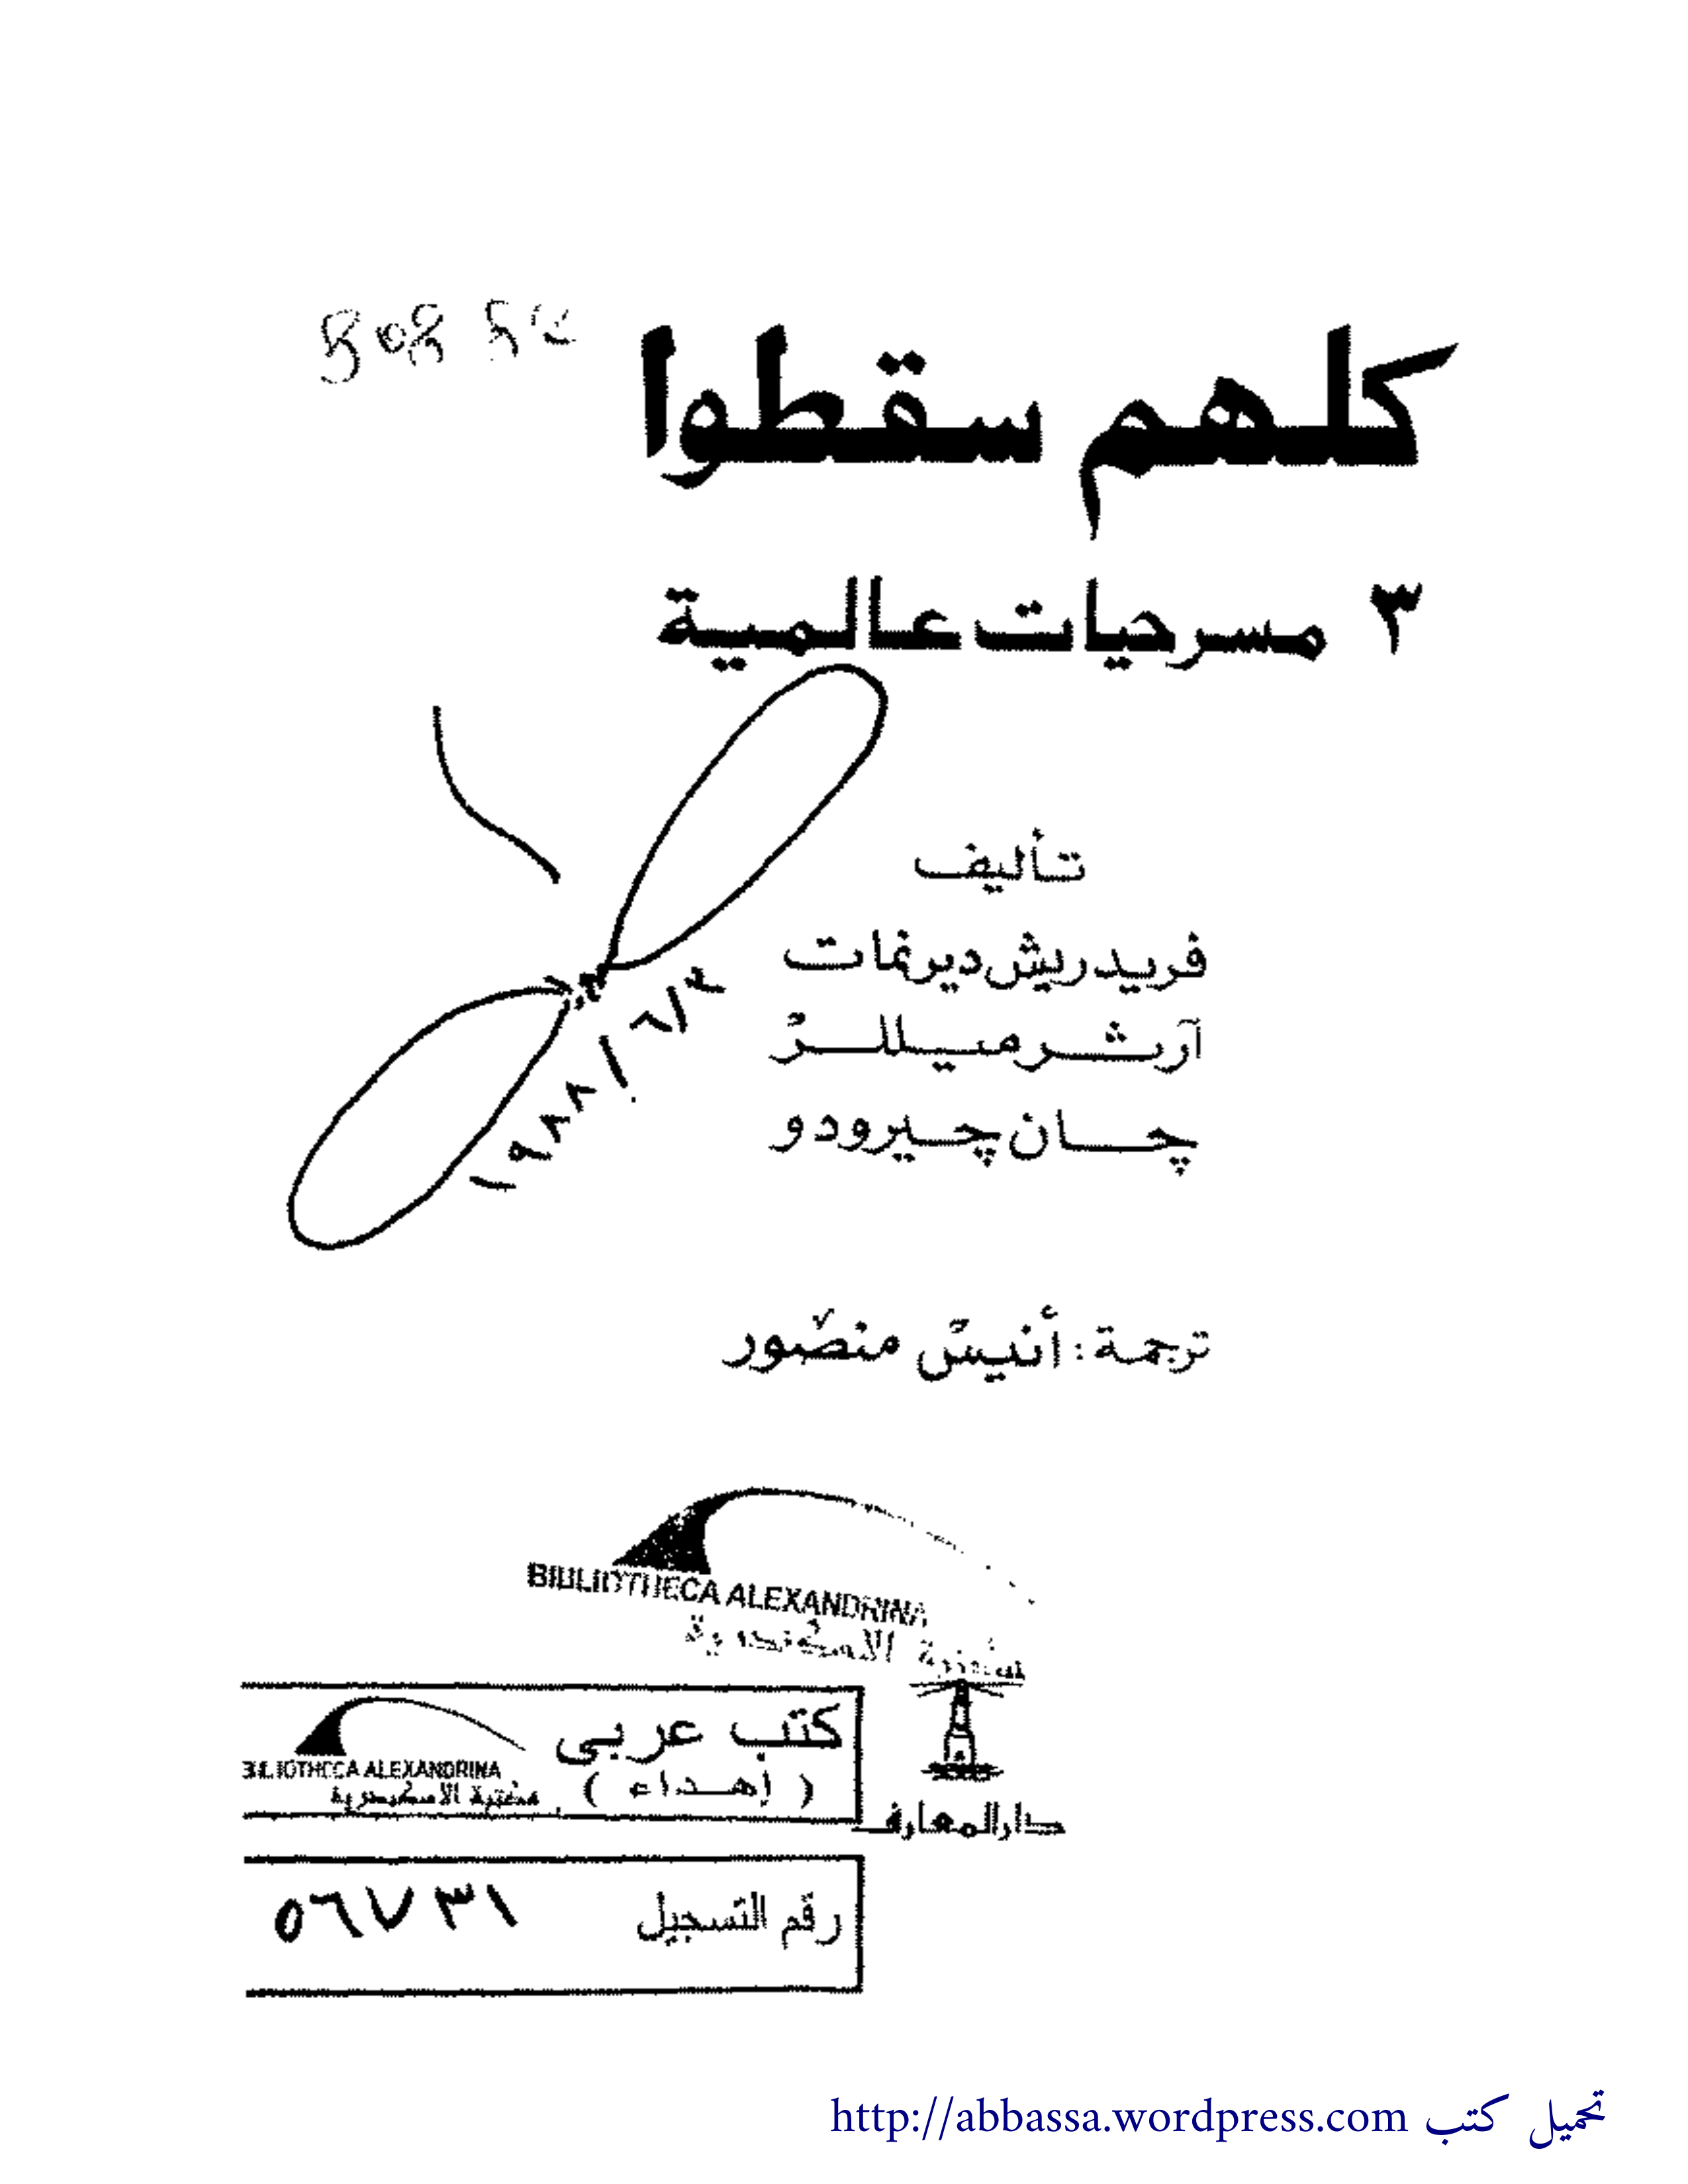 كلهم سقطوا
٣ مسرحيات عالمية
تأليف
فريدريش ديرنمات
آرثر ميللر
چان چيرودو
ترجمة : أنيس منصور
BIBLIOTHECA ALEXANDRINA
مكتبة الاسكندرية
كتب عربى
( إهداء )
BIBLIOTHECA ALEXANDRINA
مكتبة الاسكندرية
دارالمعارف
رقم التسجيل ٥٦٧٣١
تحميل كتب http://abbassa.wordpress.com